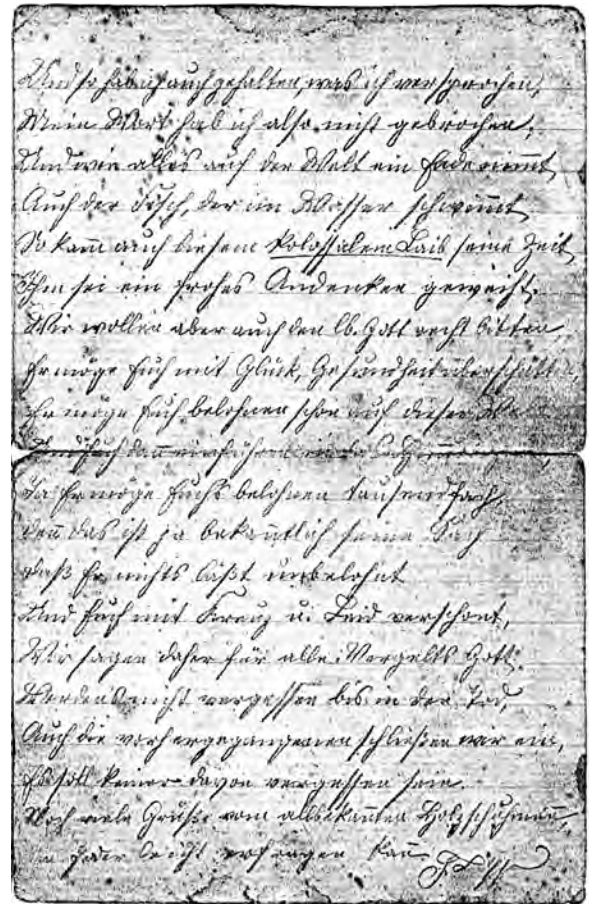 Und so hab ich auch gehalten, was ich versprochen,
Mein Wort hab ich also nicht gebrochen;
Und wie alles auf der Welt ein Ende nimmt
Auch der Fisch, der im Wasser schwimmt
So kam auch diesem kolossalem Laib seine Zeit
Ihm sei ein frohes Andenken geweiht.
Wir wollen aber auch den lb. Gott recht bitten,
Er möge Euch mit Glück, Gesundheit überschütt
Er möge Euch belohnen schon auf dieser We
Und Euch dann einführen in das
Ja Er möge Euchs belohnen tausendfach,
den das ist ja bekanntlich seine Sach
daß Er nichts läßt unbelohnt
Und Euch mit Kreuz u. Leid verschont,
Wir sagen daher für alle: Vergelts Gott!
Werdens nicht vergessen bis in den Tod,
Auch die vorhergegangenen schließen wir ein,
Es soll keiner davon vergessen sein.
Noch viele Grüße vom allbekannten Holzschuhmann,
jeder leicht erfragen kann